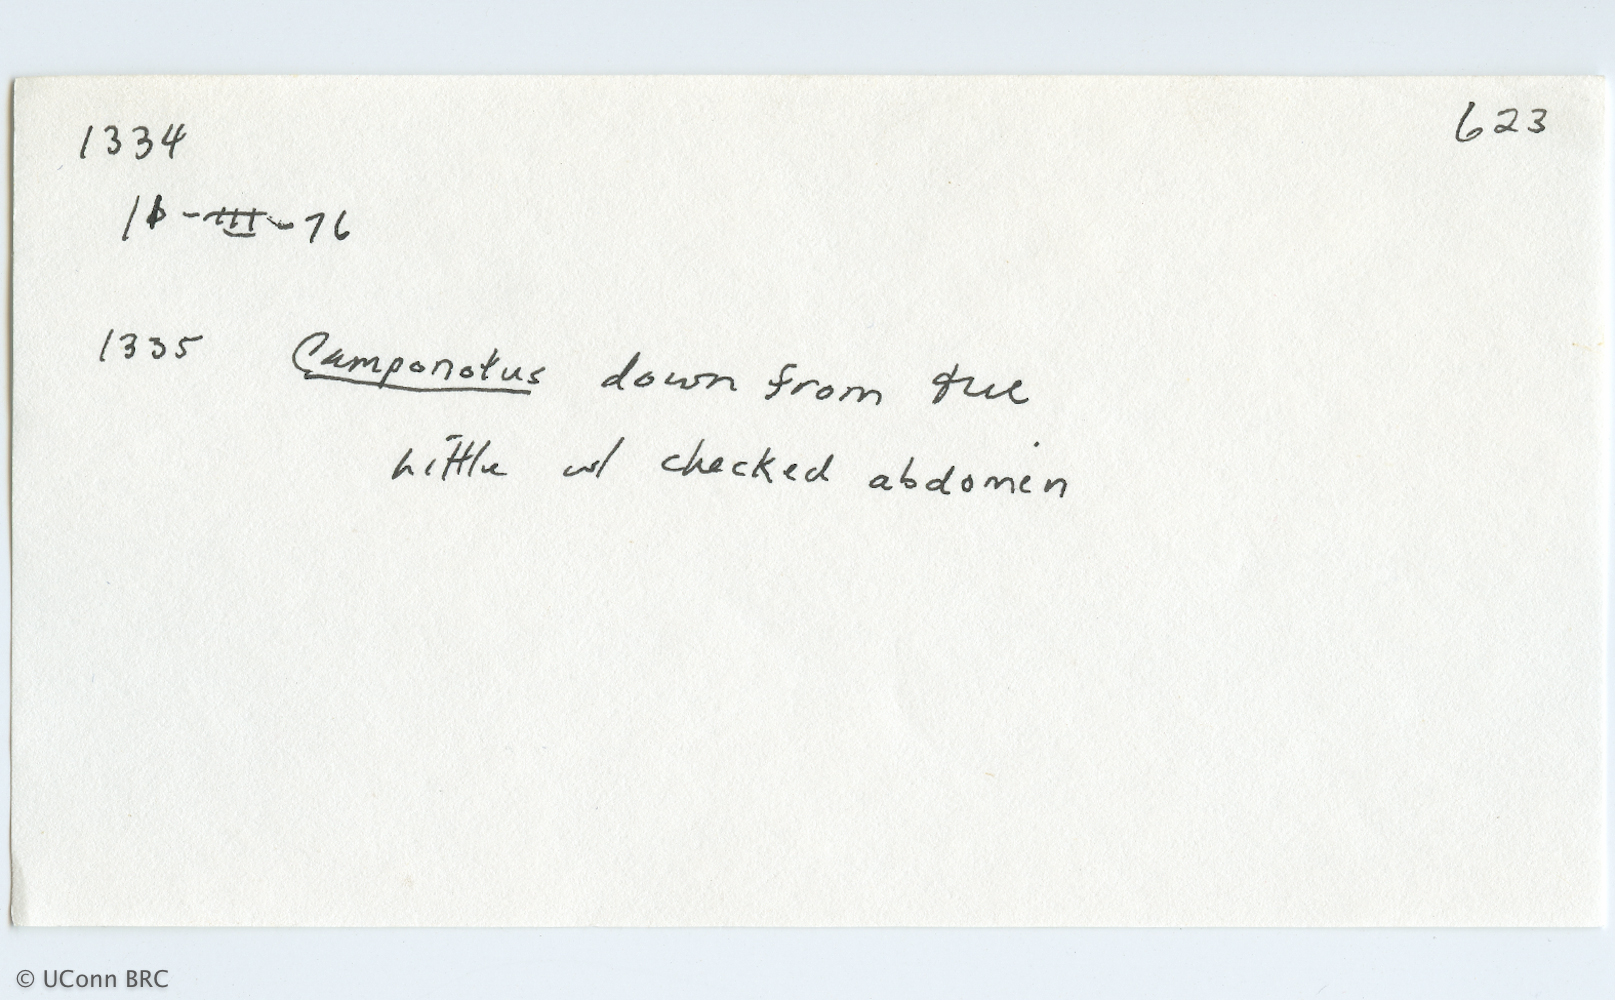 1334
623
-III-76
1335 Camponotus down from tree
w/ checked abdomen
© UConn BRC